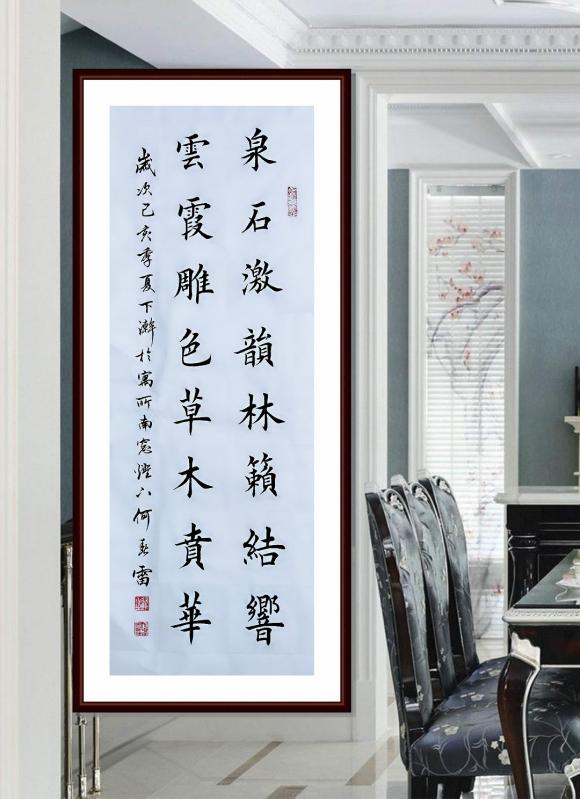 泉石激韻林籟結響
雲霞雕色草木賁華
歲次己亥季夏下澣於寓所南窓燈下何春雷